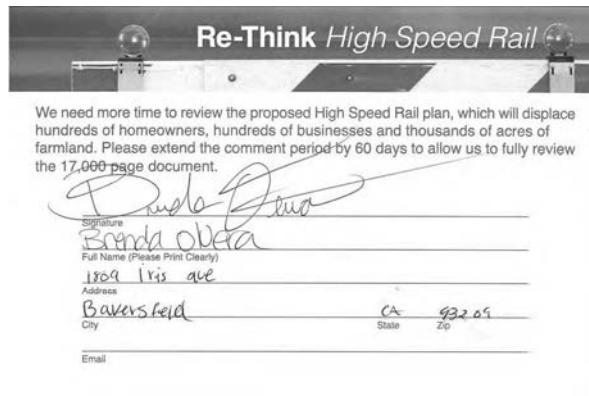 Re-Think High Speed Rail
We need more time to review the proposed High Speed Rail plan, which will displace
hundreds of homeowners, hundreds of businesses and thousands of acres of
farmland. Please extend the comment period by 60 days to allow us to fully review
the 17,000 page document.
Signature
Brenda Olvera
Full Name (Please Print Clearly)
1809 Iris ave
Address
Bakersfield CA
City State Zip
Email